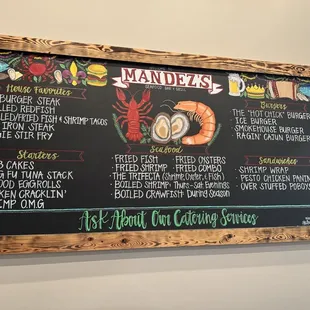 MANDEZ'S
SEAFOOD BAR & GRILL
House Favorites
BURGER STEAK
REDFISH
FRIED FISH & SHRIMP TACOS
IRON STEAK
STIR FRY
Starters
CAKES
TUNA STACK
EGGROLLS
CRACKLIN'
O.M.G.
Seafood
· FRIED FISH · FRIED OYSTERS
· FRIED SHRIMP · FRIED COMBO
· THE TRIFECTA (Shrimp, Oyster, & Fish)
· BOILED SHRIMP: Thurs-Sat Evenings
· BOILED CRAWFISH: During Season
BURGERS
· THE "HOT CHICK" BURGER
· ICE BURGER
· SMOKEHOUSE BURGER
· RAGIN' CAJUN BURGER
Sandwiches
· SHRIMP WRAP
· PESTO CHICKEN PANINI
· OVER STUFFED POBOYS
Ask About Our Catering Services